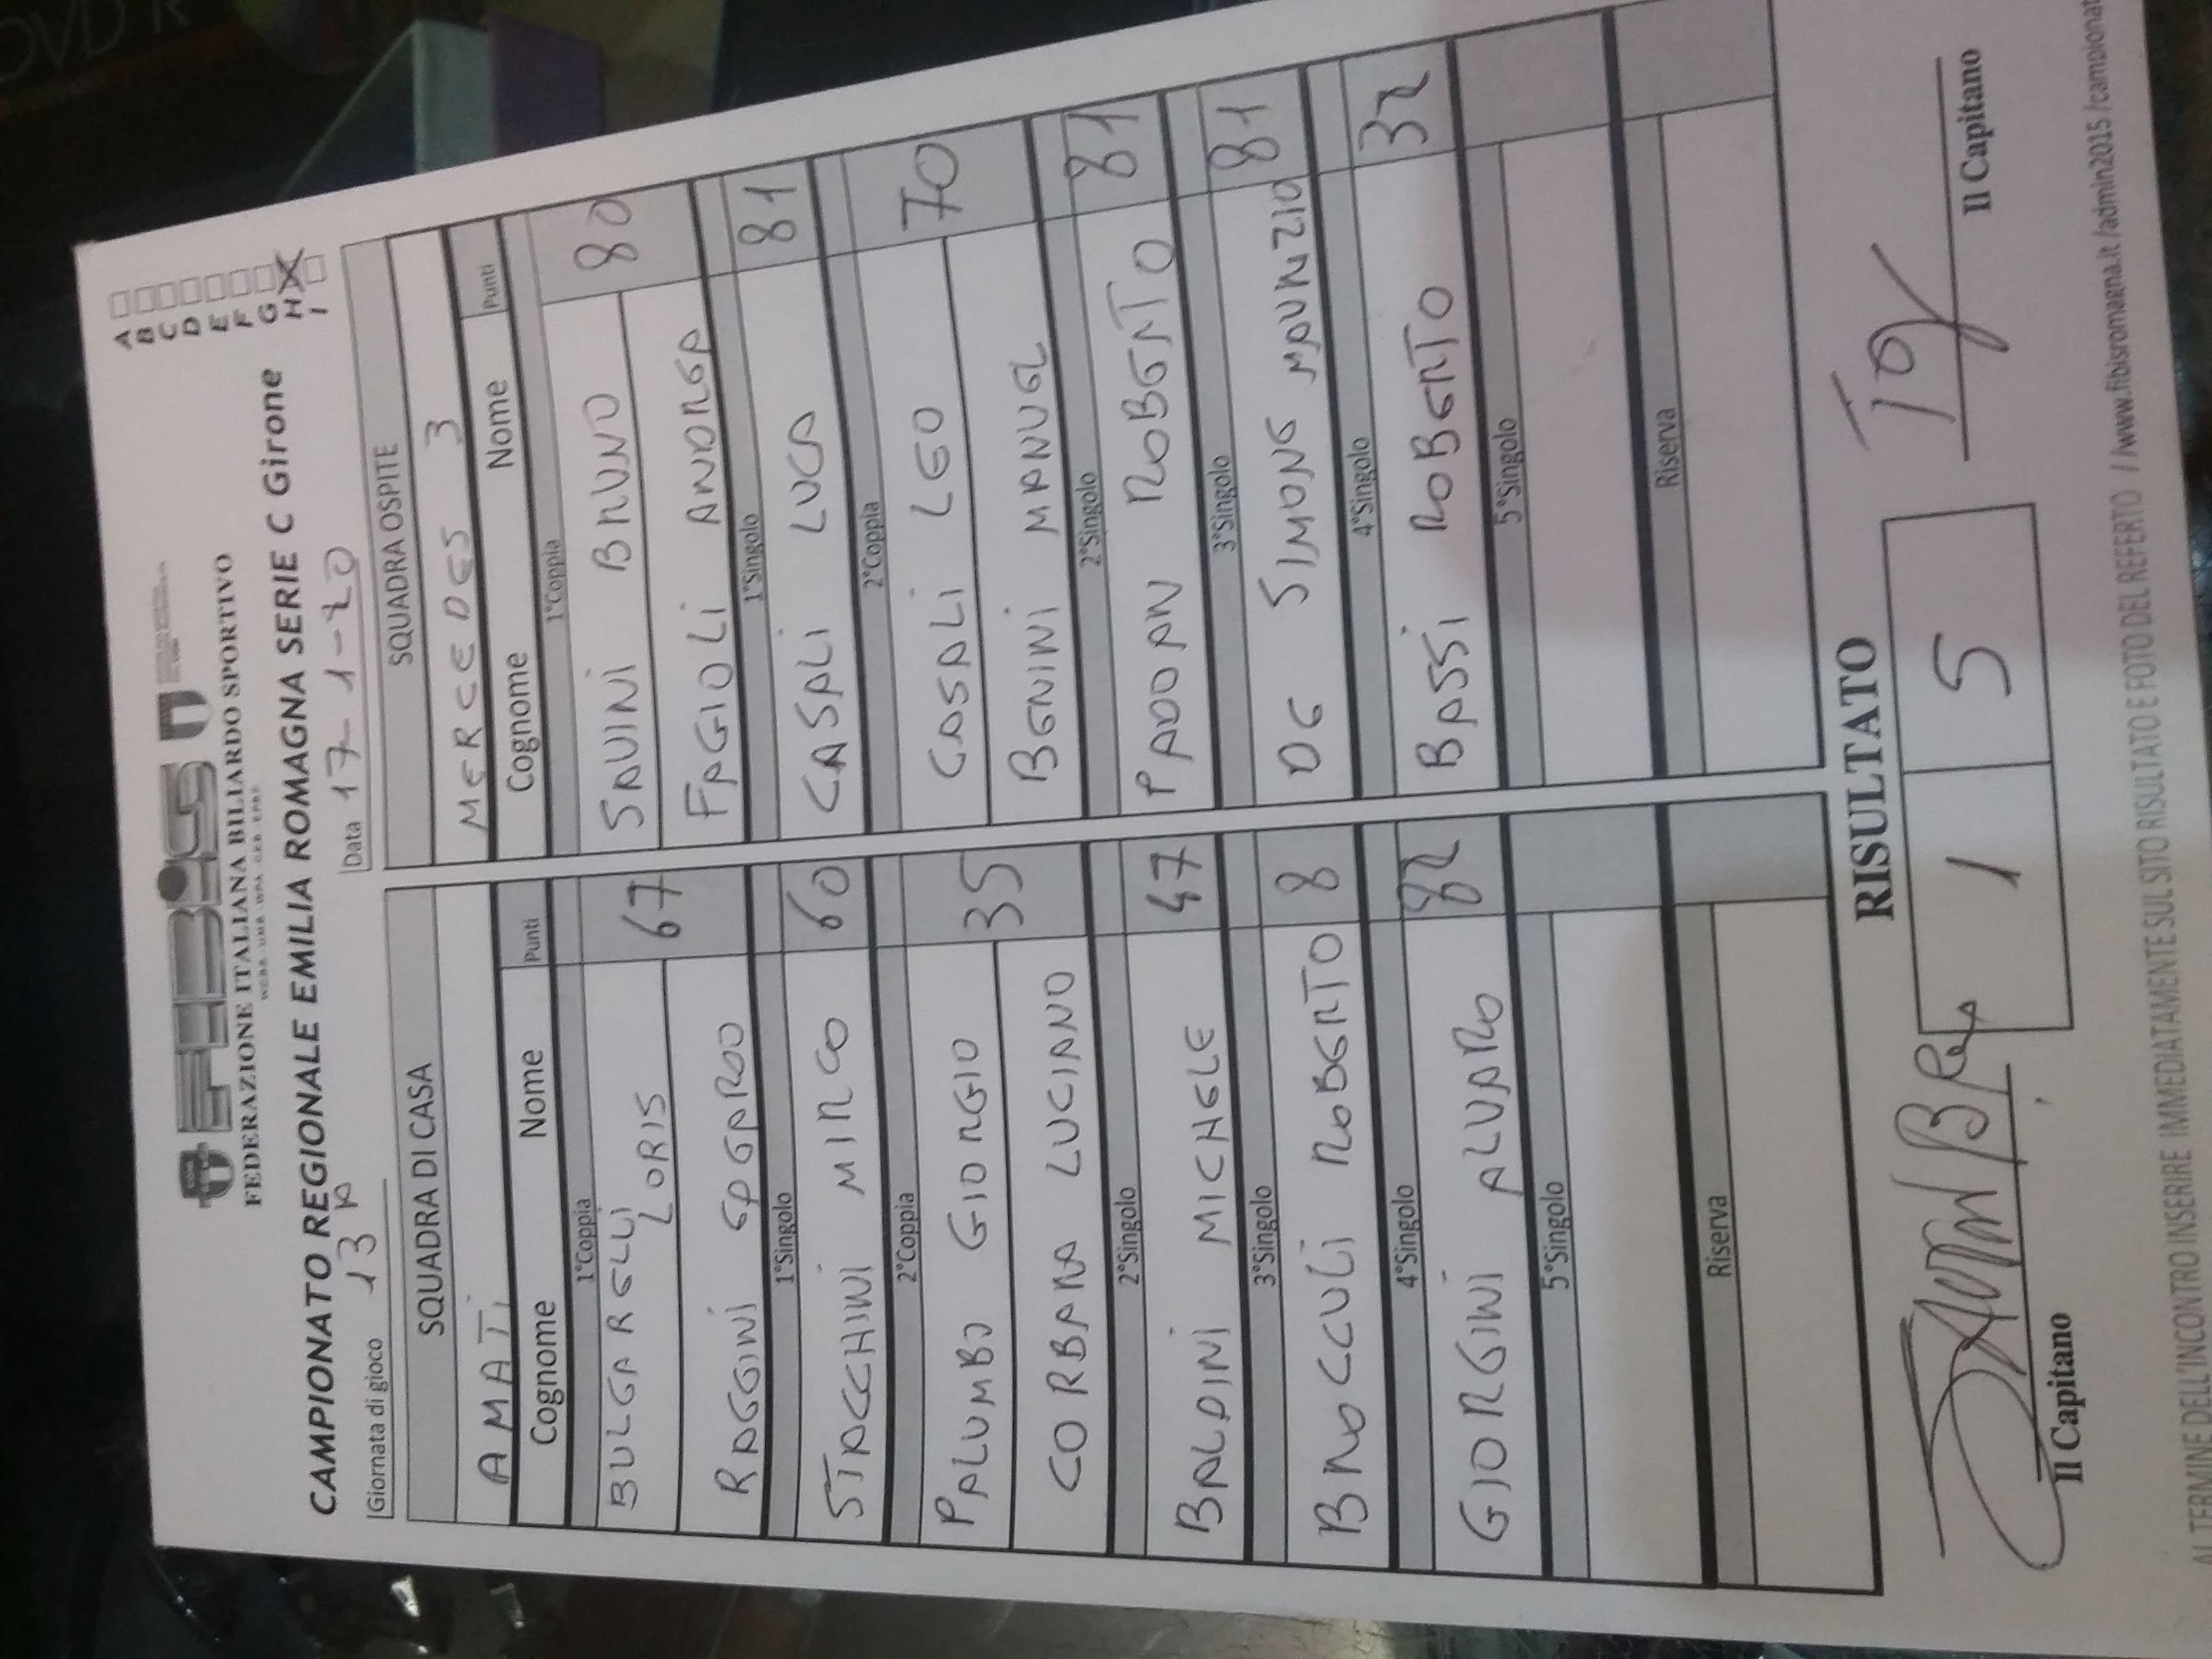 FEBIS
FEDERAZIONE ITALIANA BILIARDO SPORTIVO
CAMPIONATO REGIONALE EMILIA ROMAGNA SERIE C Girone
A
B
C
D
E
F
G
H X
I
Giornata di gioco 13 A
Data 17-1-20
SQUADRA DI CASA
AMATi
Cognome Nome Punti
1°Coppia
BULGARELLi LORIS 67
RAGGiNi EDGARDO
1°Singolo
STACCHiNi MIRCO 60
2°Coppia
PALUMBO GIORGIO 35
CORBARA LUCIANO
2°Singolo
BALDINi MICHELE 47
3°Singolo
BROCCULi ROBERTO 8
4°Singolo
GIORGINi ALVARO 82
5°Singolo
Riserva
SQUADRA OSPITE
MERCEDES 3
Cognome Nome Punti
1°Coppia
SAVINi BRUNO 80
FAGIOLi ANDREA
1°Singolo
CASALi LUCA 81
2°Coppia
CASALi LEO 70
BENINi MANUEL
2°Singolo
PADOAN ROBERTO 81
3°Singolo
DE SIMONE MAURIZIO 81
4°Singolo
BASSi ROBERTO 32
5°Singolo
Riserva
RISULTATO
1 5
Il Capitano
Il Capitano
AL TERMINE DELL'INCONTRO INSERIRE IMMEDIATAMENTE SUL SITO RISULTATO E FOTO DEL REFERTO / www.fibisromagna.it /admin2015 /campionat